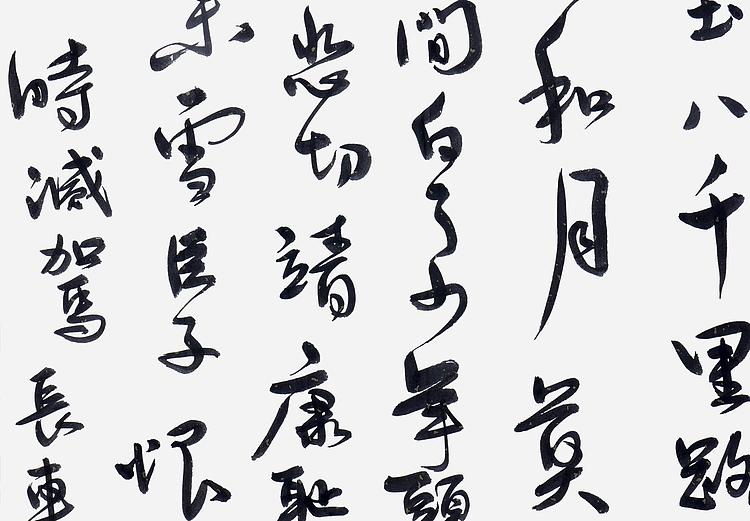 土八千里路
和月莫
間白了少年頭
悲切靖康恥
未雪臣子恨
時滅駕長車